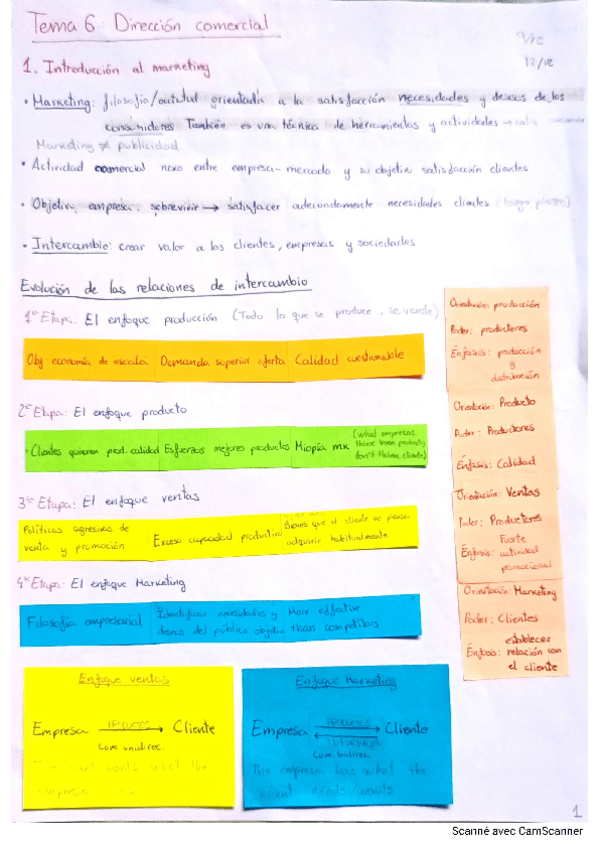 Tema 6: Dirección comercial
9/12
12/12
1. Introducción al marketing
• Marketing: filosofía/actitud orientada a la satisfacción necesidades y deseos de los
consumidores También es una técnica de herramientas y actividades →
Marketing ≠ publicidad
• Actividad comercial nexo entre empresa-mercado y su objetivo satisfacción clientes
• Objetivo empresa: sobrevivir → satisfacer adecuadamente necesidades clientes (largo plazo)
• Intercambio: crear valor a los clientes, empresas y sociedades
Evolución de las relaciones de intercambio
1ª Etapa: El enfoque producción (Todo lo que se produce, se vende)
Obj economía de escala Demanda superior oferta Calidad cuestionable
2ª Etapa: El enfoque producto
• Clientes quieren prod. calidad Esfuerzos mejores productos Miopía mk (what empresas
think
don't think cliente)
3ª Etapa: El enfoque ventas
Políticas agresivas de
venta y promoción
Exceso capacidad productiva
Bienes que el cliente no piensa
adquirir habitualmente
4ª Etapa: El enfoque Marketing
Filosofía empresarial
Identificar necesidades y
deseos del público objetivo
More effective
than competitors
Orientación: producción
Poder: productores
Énfasis: producción
y
distribución
Orientación: Producto
Poder: Productores
Énfasis: Calidad
Orientación: Ventas
Poder: Productores
Fuerte
Énfasis: actividad
promocional
Orientación: Marketing
Poder: Clientes
establecer
Énfasis: relación con
el cliente
Enfoque ventas
Empresa → Cliente
Com. unidirec.
wants what the
Enfoque Marketing
Empresa Cliente
Com. bidirec.
The empresa has what the
needs/wants
1
Scanné avec CamScanner